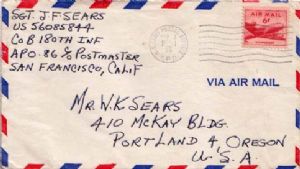 SGT. J F SEARS
US 56085844
CO B 180TH INF
APO 86 c/o POSTMASTER
SAN FRANCISCO, CALIF
AIR MAIL
6¢
VIA AIR MAIL
MR. W.K SEARS
410 MCKAY BLDG.
PORTLAND 4, OREGON
U.S.A.